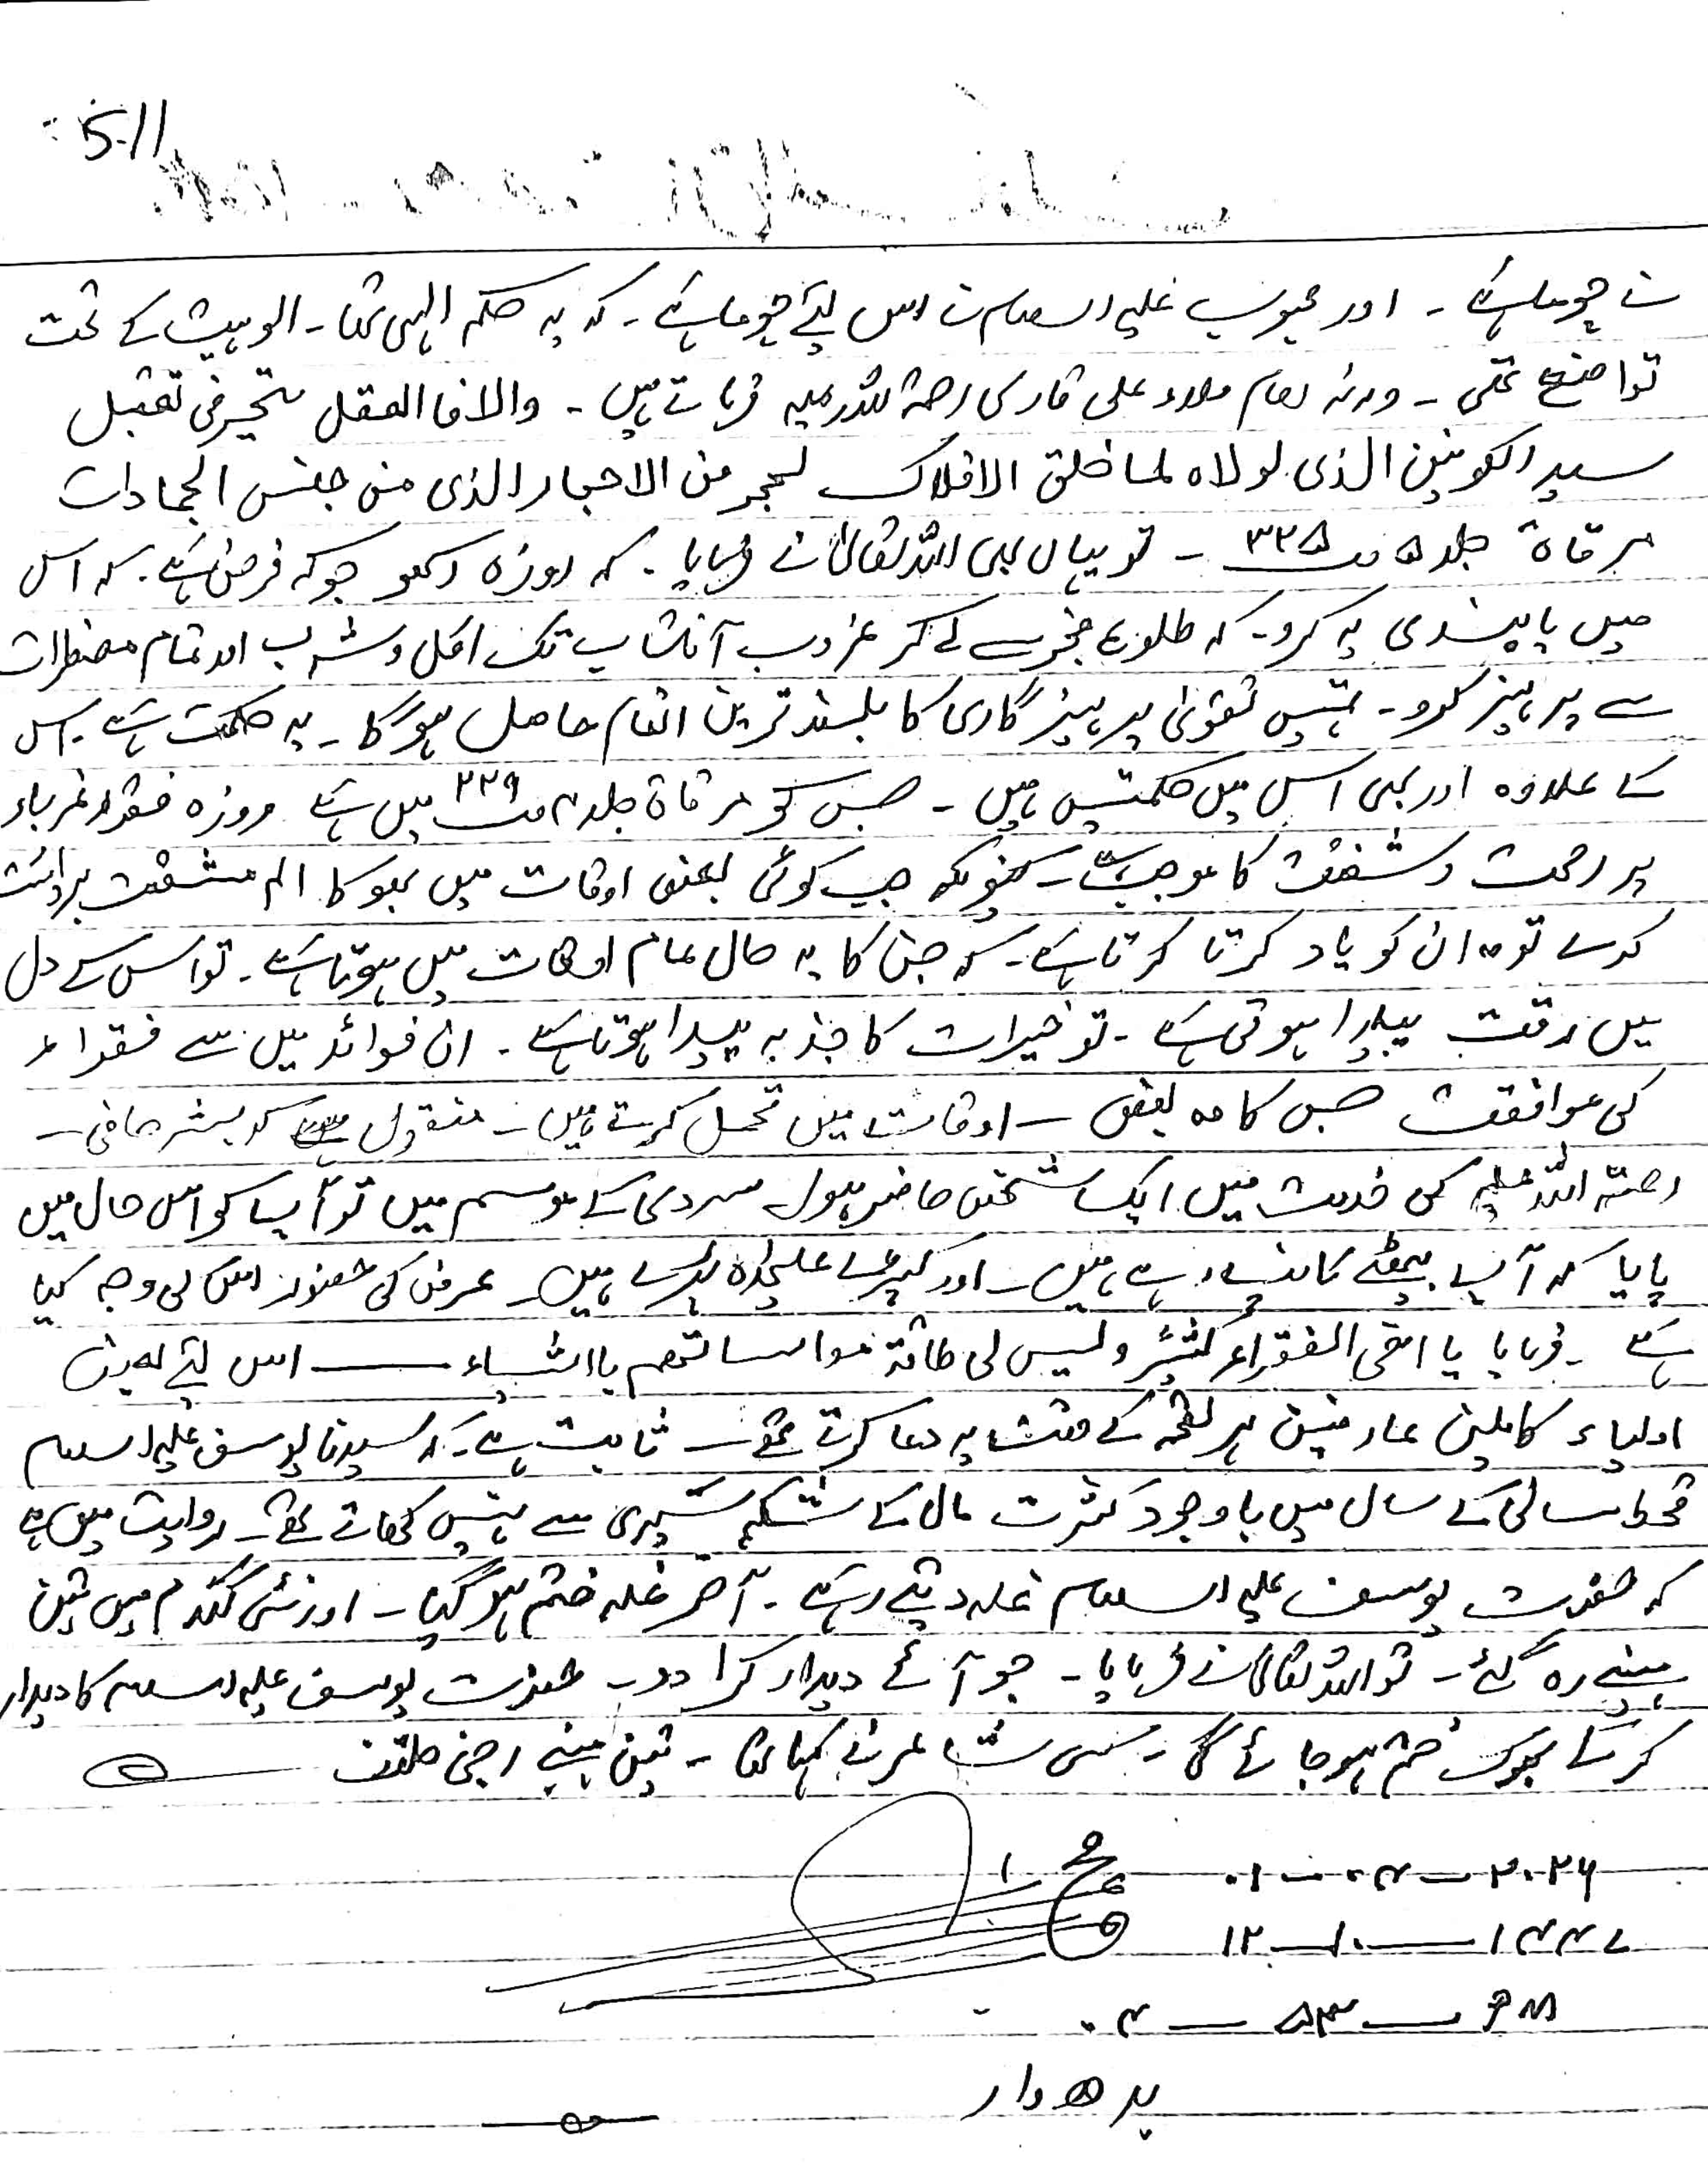 5-11
نے چوما ہے ۔ اور محبوب علیہ السلام نے اس لئے چوما ہے ۔ کہ یہ حکم الہی تھا ۔ الوہیت کے تحت
تواضع تھی ۔ ورنہ امام ملاء علی قاری رحمۃ اللہ علیہ فرماتے ہیں ۔ والا فا العقل متحیر فی تقبل
سید الکونین الذی لولاہ لما خلق الافلاک لحجر من الاحجار الذی من جنس الجمادات
مرقاۃ جلد ۵ صـ ۳۲۵ ۔ تو یہاں بھی اللہ تعالیٰ نے فرمایا ۔ کہ روزہ رکھو جو کہ فرض ہے ۔ کہ اس
میں پابندی یہ کرو ۔ کہ طلوع فجر سے لے کر غروب آفتاب تک اکل و شرب اور تمام مفطرات
سے پرہیز کرو ۔ تمہیں تقویٰ پرہیز گاری کا بلند ترین انعام حاصل ہوگا ۔ یہ حکمت ہے ۔ اس
کے علاوہ اور بھی اس میں حکمتیں ہیں ۔ جس کو مرقاۃ جلد ۴ صـ ۲۲۹ میں ہے روزہ فقراء غرباء
پر رحمت و شفقت کا موجب ہے ۔ کیونکہ جب کوئی بعض اوقات میں بھوکا الم مشقت برداشت
کرے تو وہ ان کو یاد کرتا کرتا ہے ۔ کہ جن کا یہ حال تمام اوقات میں ہوتا ہے ۔ تو اس کے دل
میں رقت پیدا ہوتی ہے ۔ تو خیرات کا جذبہ پیدا ہوتا ہے ۔ ان فوائد میں سے فقراء
کی موافقت جس کا وہ بعض ۔ اوقات میں تحمل کرتے ہیں ۔ منقول ہے کہ بشر حافی ۔
رحمتہ اللہ علیہ کی خدمت میں ایک شخص حاضر ہوا سردی کے موسم میں تو آپ کو اس حال میں
پایا کہ آپ بیٹھے کانپ رہے ہیں ۔ اور کپڑے علیحدہ پڑے ہیں ۔ عرض کی حضور اس کی وجہ کیا
ہے ۔ فرمایا یا اخی الفقراء کثیر و لیس لی طاقۃ مواساتھم با الثیاب ـــ اس لئے
اولیاء کاملین عارفین ہر لقمہ کے وقت یہ دعا کرتے تھے ۔ ثابت ہے ۔ کہ سیدنا یوسف علیہ السلام
قحط سالی کے سال میں باوجود کثرت مال کے شکم سیری سے نہیں کھاتے تھے ۔ روایت میں ہے
کہ حضرت یوسف علیہ السلام غلہ دیتے رہے ۔ آخر غلہ ختم ہو گیا ۔ اور نئی گندم میں تین
مہینے رہ گئے ۔ تو اللہ تعالیٰ نے فرمایا ۔ جو آئے دیدار کرا دو ۔ حضرت یوسف علیہ السلام کا دیدار
کرتے بھوک ختم ہو جائے گی ۔ کسی شاعر نے کہا تھا ۔ تین مہینے رجی خلقت
۰۱ - ۰۴ - ۲۰۲۶
۱۲ - ۱۰ - ۱۴۴۷
۰۴ - ۵۳ - PM
بدھ وار